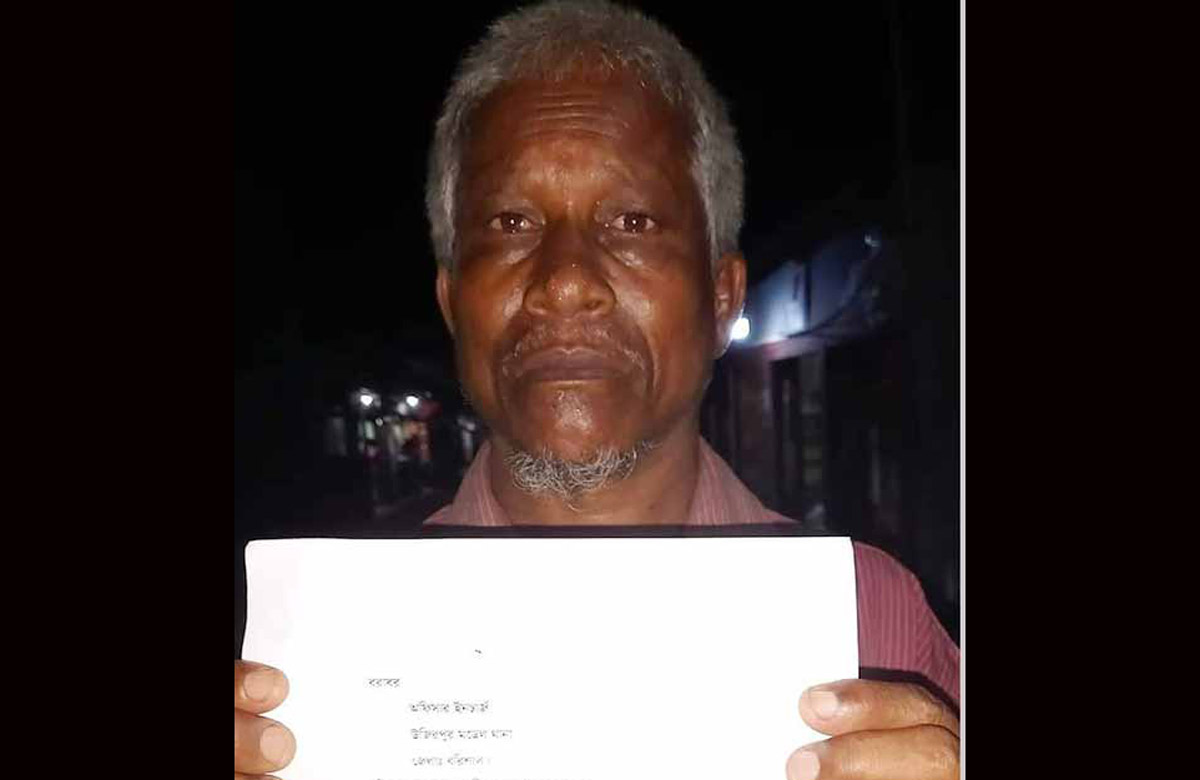 বরাবর
অফিসার ইনচার্জ
উজিরপুর মডেল থানা
জেলাঃ বরিশাল।